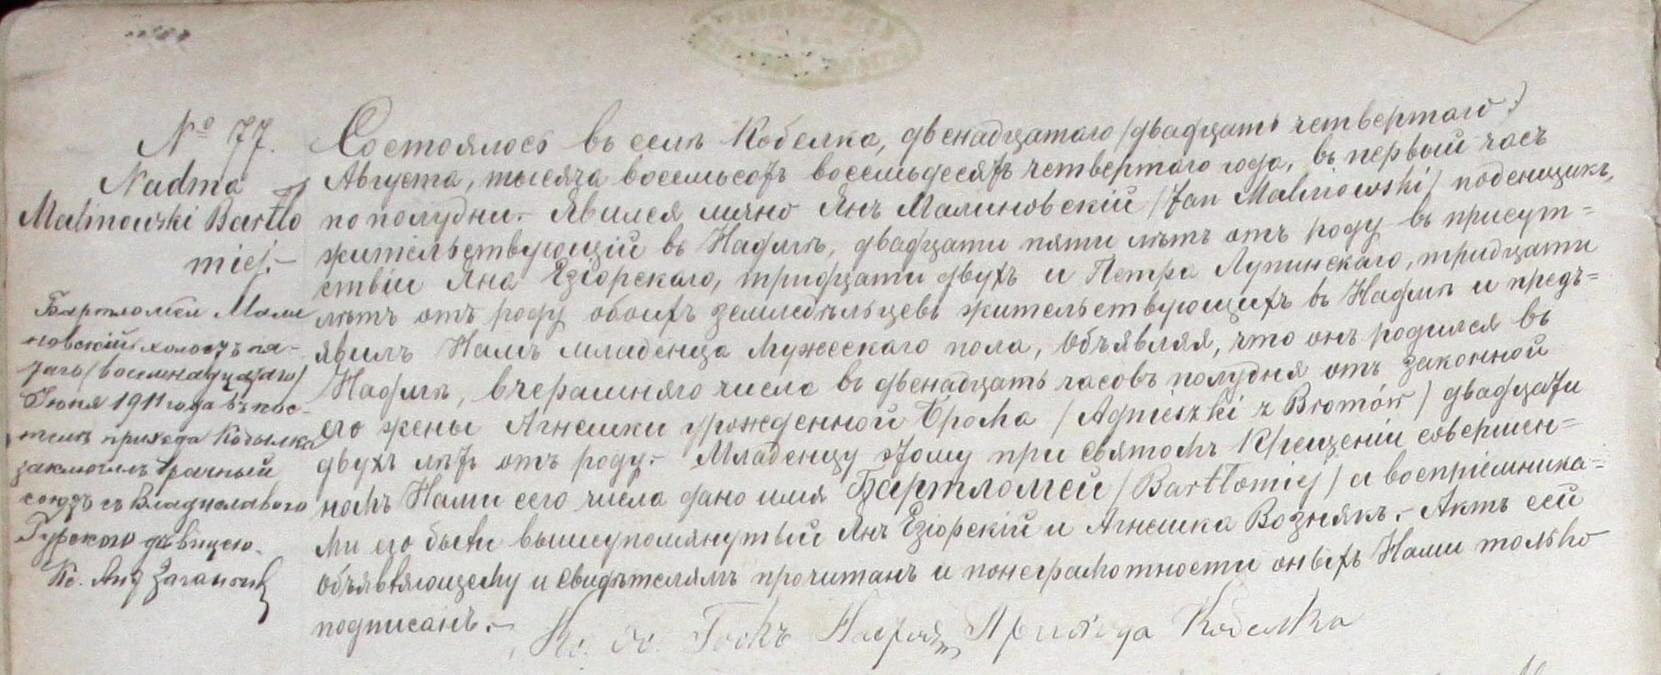 № 77.
Nadma
Malinowski Bartło
miej.-
Бартломей Мали
новскій холостъ пя-
таго (восемнадцатаго)
Іюня 1911 года въ кос-
телѣ прихода Кобылка
заключилъ брачный
союзъ съ Владиславою
Гурскою дѣвицею.
Кс. Янъ
Состоялось въ селѣ Кобелка, двенадцатаго (двадцать четвертаго)
Августа, тысяча восемьсотъ восемьдесятъ четвертаго года, въ первый часъ
пополудни.- Явился лично Янъ Малиновскій (Jan Malinowski) поденщикъ,
жительствующій въ Надмѣ, двадцати пяти лѣтъ отъ роду въ присут=
ствіи Яна Езіорскаго, тридцати двухъ и Петра Лупинскаго, тридцати
лѣтъ отъ роду обоихъ земледѣльцевъ жительствующихъ въ Надмѣ и предъ=
явилъ Намъ младенца мужескаго пола, объявляя, что онъ родился въ
Надмѣ, вчерашняго числа въ двенадцать часовъ полудня отъ законной
его жены Агнешки урожденной Брома (Agnieszki z Bromów) двадцати
двухъ лѣтъ отъ роду.- Младенцу этому при Святомъ Крещеніи совершен=
номъ Нами сего числа дано имя Бартломей (Bartłomiej) а воспріемника=
ми его были вышеупомянутый Янъ Езіорскій и Агнешка Вознякъ.- Актъ сей
объявляющему и свидѣтелямъ прочитанъ и по неграмотности оныхъ Нами только
подписанъ.-
Кс. Прихода Кобелка